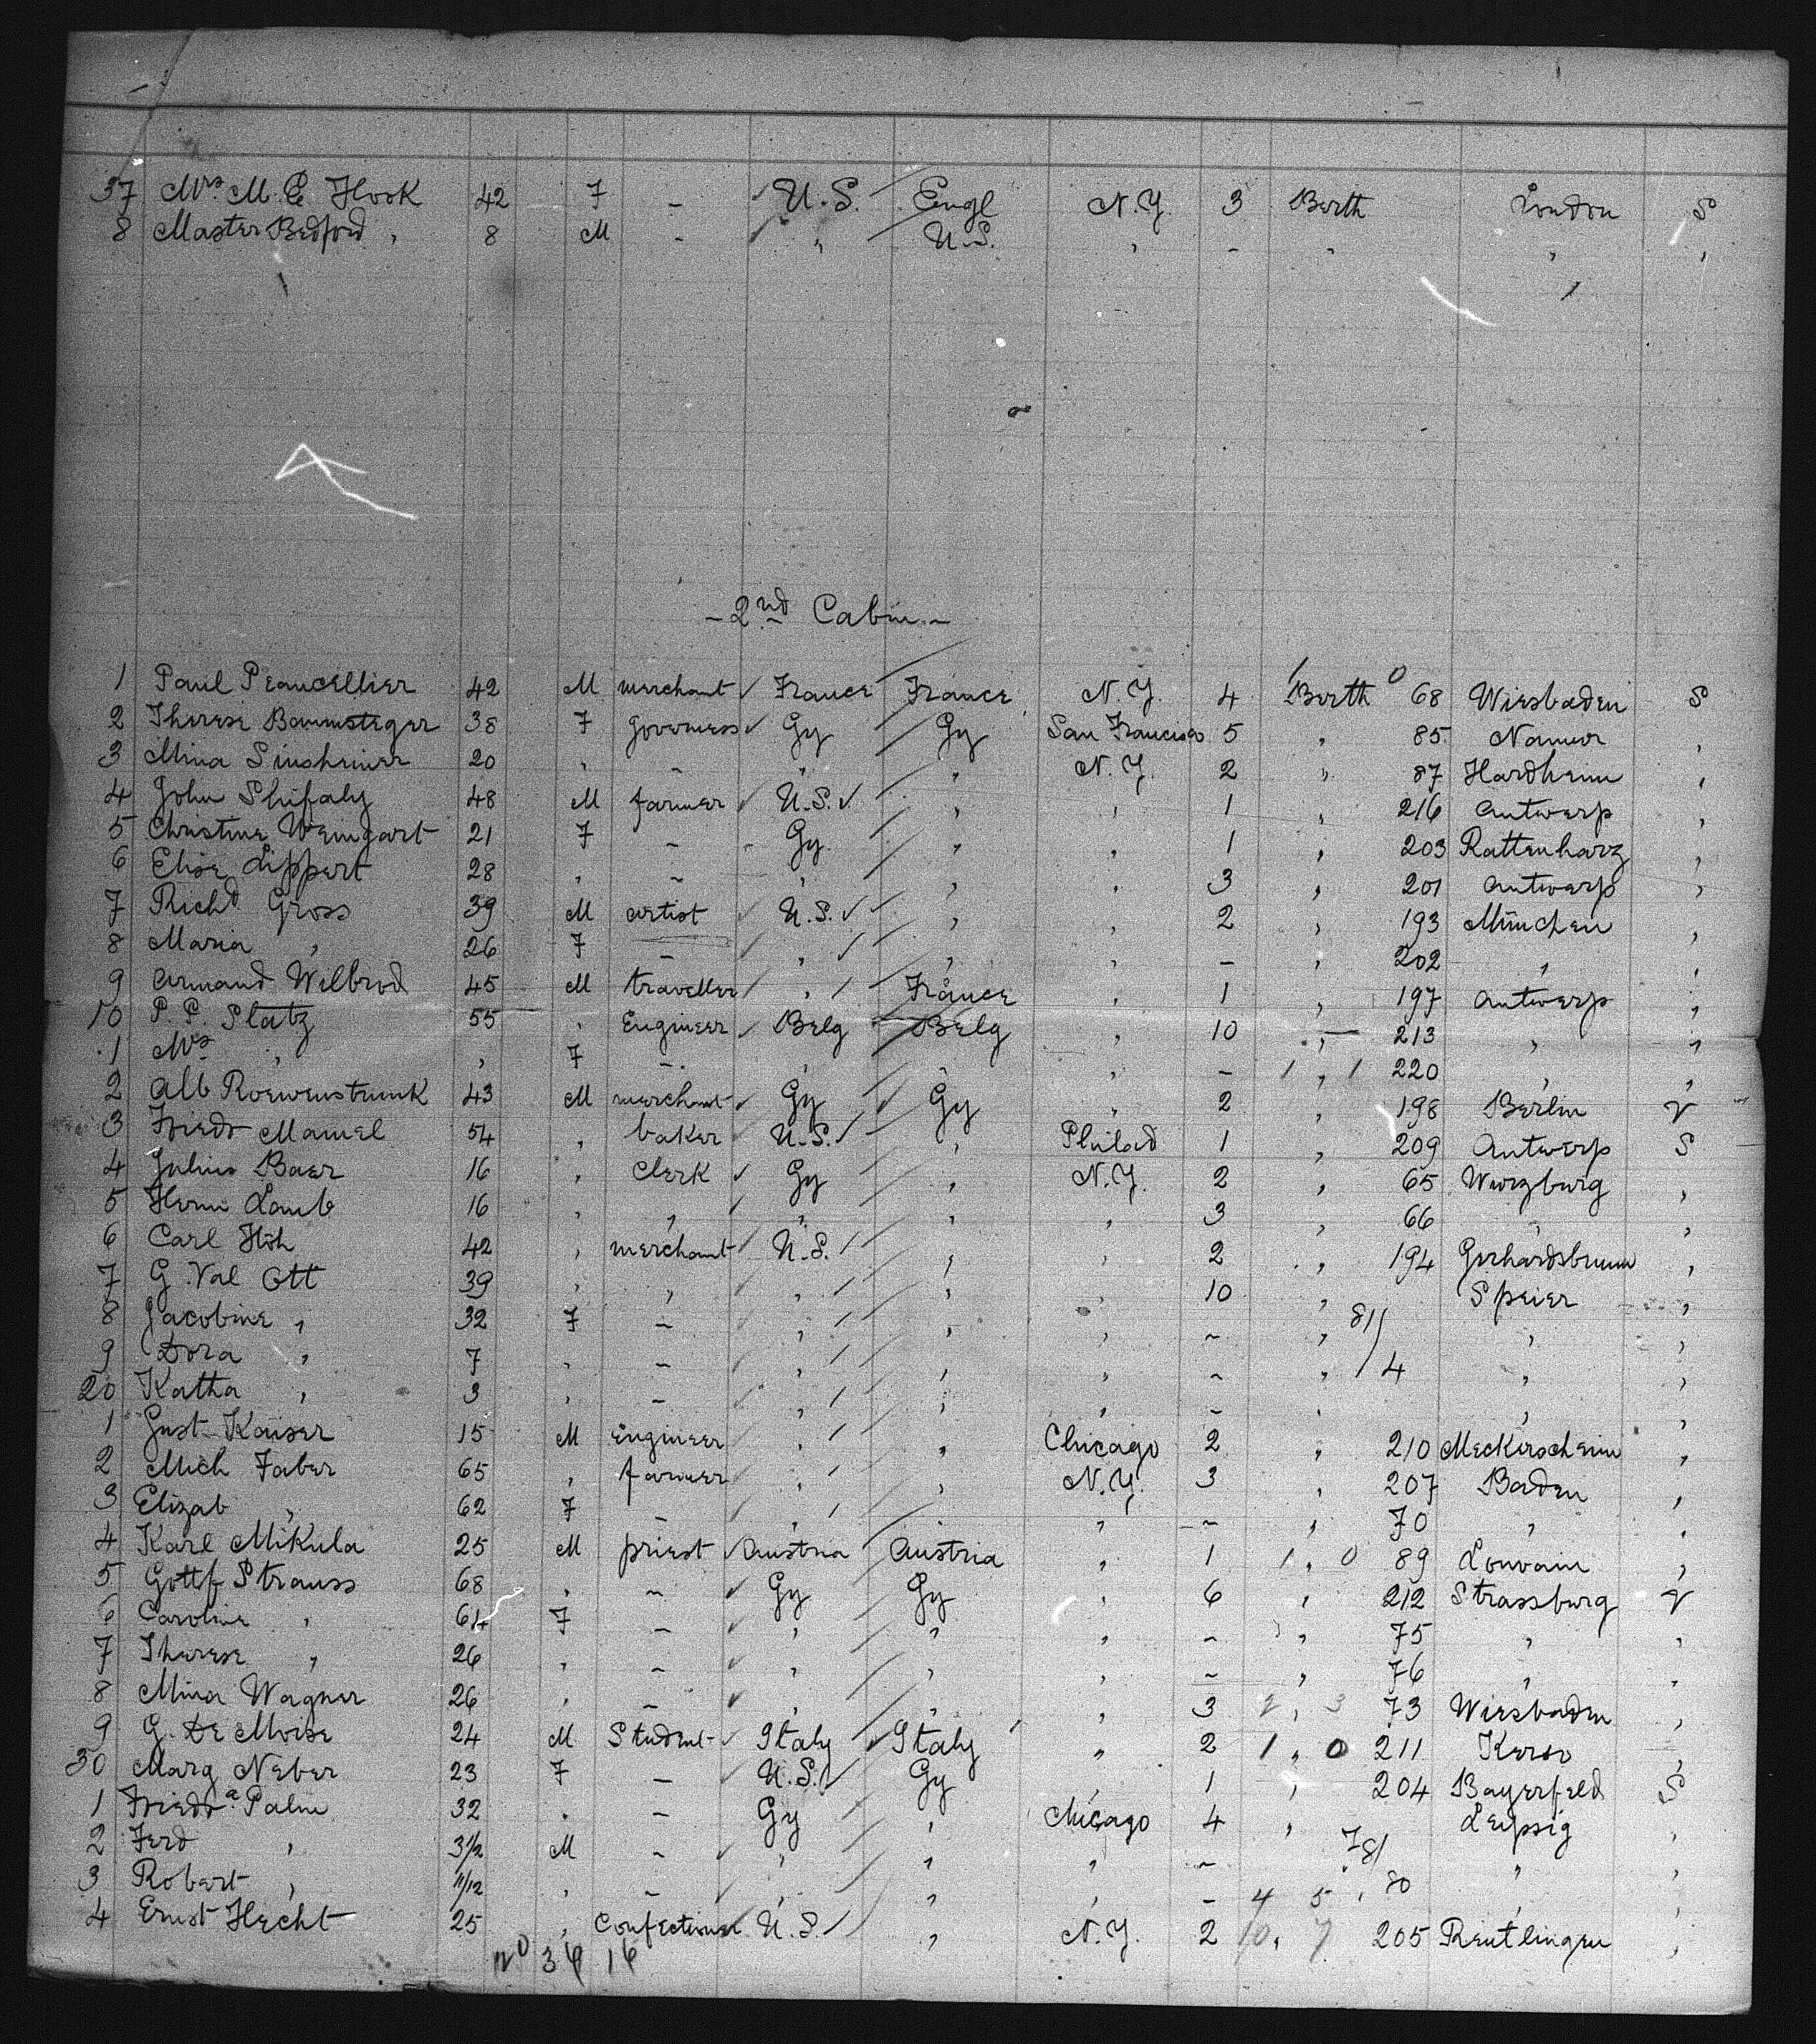 37 Mrs. M. E. Hook 42 F - U.S. Engl N.Y. 3 Berth London S
8 Master Bedford , 8 M - , U.S. , - , , ,
- 2nd Cabin -
1 Paul Peaucellier 42 M merchant France France N.Y. 4 Berth 0 68 Wiesbaden S
2 Therese Baumsteger 38 F governess Gy Gy San Francisco 5 , 85 Namur ,
3 Mina Sinsheimer 20 , - , , N.Y. 2 , 87 Hardheim ,
4 John Shifaly 48 M farmer U.S. , , 1 , 216 Antwerp ,
5 Christine Weingart 21 F - Gy. , , 1 , 203 Rattenharz ,
6 Elise Lippert 28 , - , , , 3 , 201 Antwerp ,
7 Richd Gross 39 M artist U.S. , , 2 , 193 München ,
8 Maria , 26 F - , , , - , 202 , ,
9 Armand Wilbrod 45 M traveller , France , 1 , 197 Antwerp ,
10 P. P. Platz 55 , Engineer Belg Belg , 10 , 213 , ,
1 Mrs , , F - , , , - 1 , 1 220 , ,
2 Alb Roewenstrunk 43 M merchant Gy Gy , 2 , 198 Berlin
3 Friedr Mamel 54 , baker U.S. , Philad 1 , 209 Antwerp S
4 Julius Baer 16 , Clerk Gy , N.Y. 2 , 65 Wurzburg ,
5 Herm Laub 16 , , , , , 3 , 66 , ,
6 Carl Höh 42 , merchant U.S. , , 2 , 194 Gerhardsbrunn ,
7 G. Val Ott 39 , , , , , 10 , Speier ,
8 Jacobine , 32 F - , , , - , 81/ , ,
9 Dora , 7 , - , , , - , / 4 , ,
20 Katha , 3 , - , , , - , , ,
1 Gust Kaiser 15 M Engineer , , Chicago 2 , 210 Meckerscheim ,
2 Mich Faber 65 , farmer , , N.Y. 3 , 207 Baden ,
3 Elizab , 62 F - , , , - , 70 , ,
4 Karl Mikula 25 M priest Austria Austria , 1 1 , 0 89 Louvain ,
5 Gottf Strauss 68 , - Gy Gy , 6 , 212 Strassburg
6 Caroline , 64 F - , , , - , 75 , ,
7 Therese , 26 , - , , , - , 76 , ,
8 Mina Wagner 26 , - , , , 3 2 , 3 73 Wiesbaden ,
9 G. De Moise 24 M Student Italy Italy , 2 1 , 0 211 ,
30 Marg Neber 23 F - U.S. Gy , 1 , 204 Bayerfeld S
1 Friedra. Palm 32 , - Gy , Chicago 4 , Leipsig ,
2 Ferd , 3 1/2 M - , , , - 78/ , ,
3 Robert , 11/12 , - , , , - 4 5 , 80 , ,
4 Ernst Hecht 25 , Confectioner U.S. , N.Y. 2 10 , 7 205 Reutlingen ,